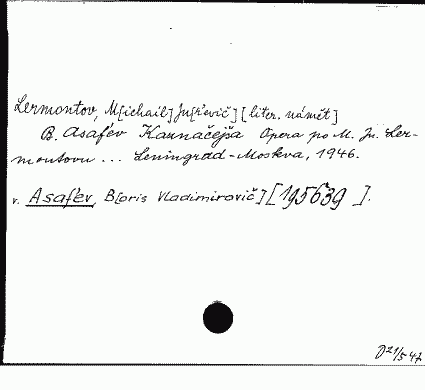 Lermontov, M[ichail] Ju[rěvič] [liter. námět]
B. Asafév Kaznačejša Opera po M. Ju. Ler-
montovu ... Leningrad-Moskva, 1946.
v. Asafěv, B[oris Vladimirovič] [195639 ].
D21/547